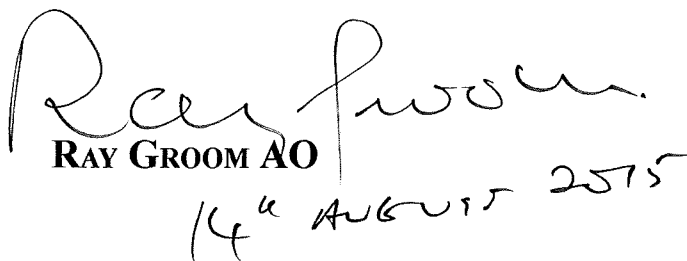 Ray Groom
RAY GROOM AO
14th AUGUST 2015